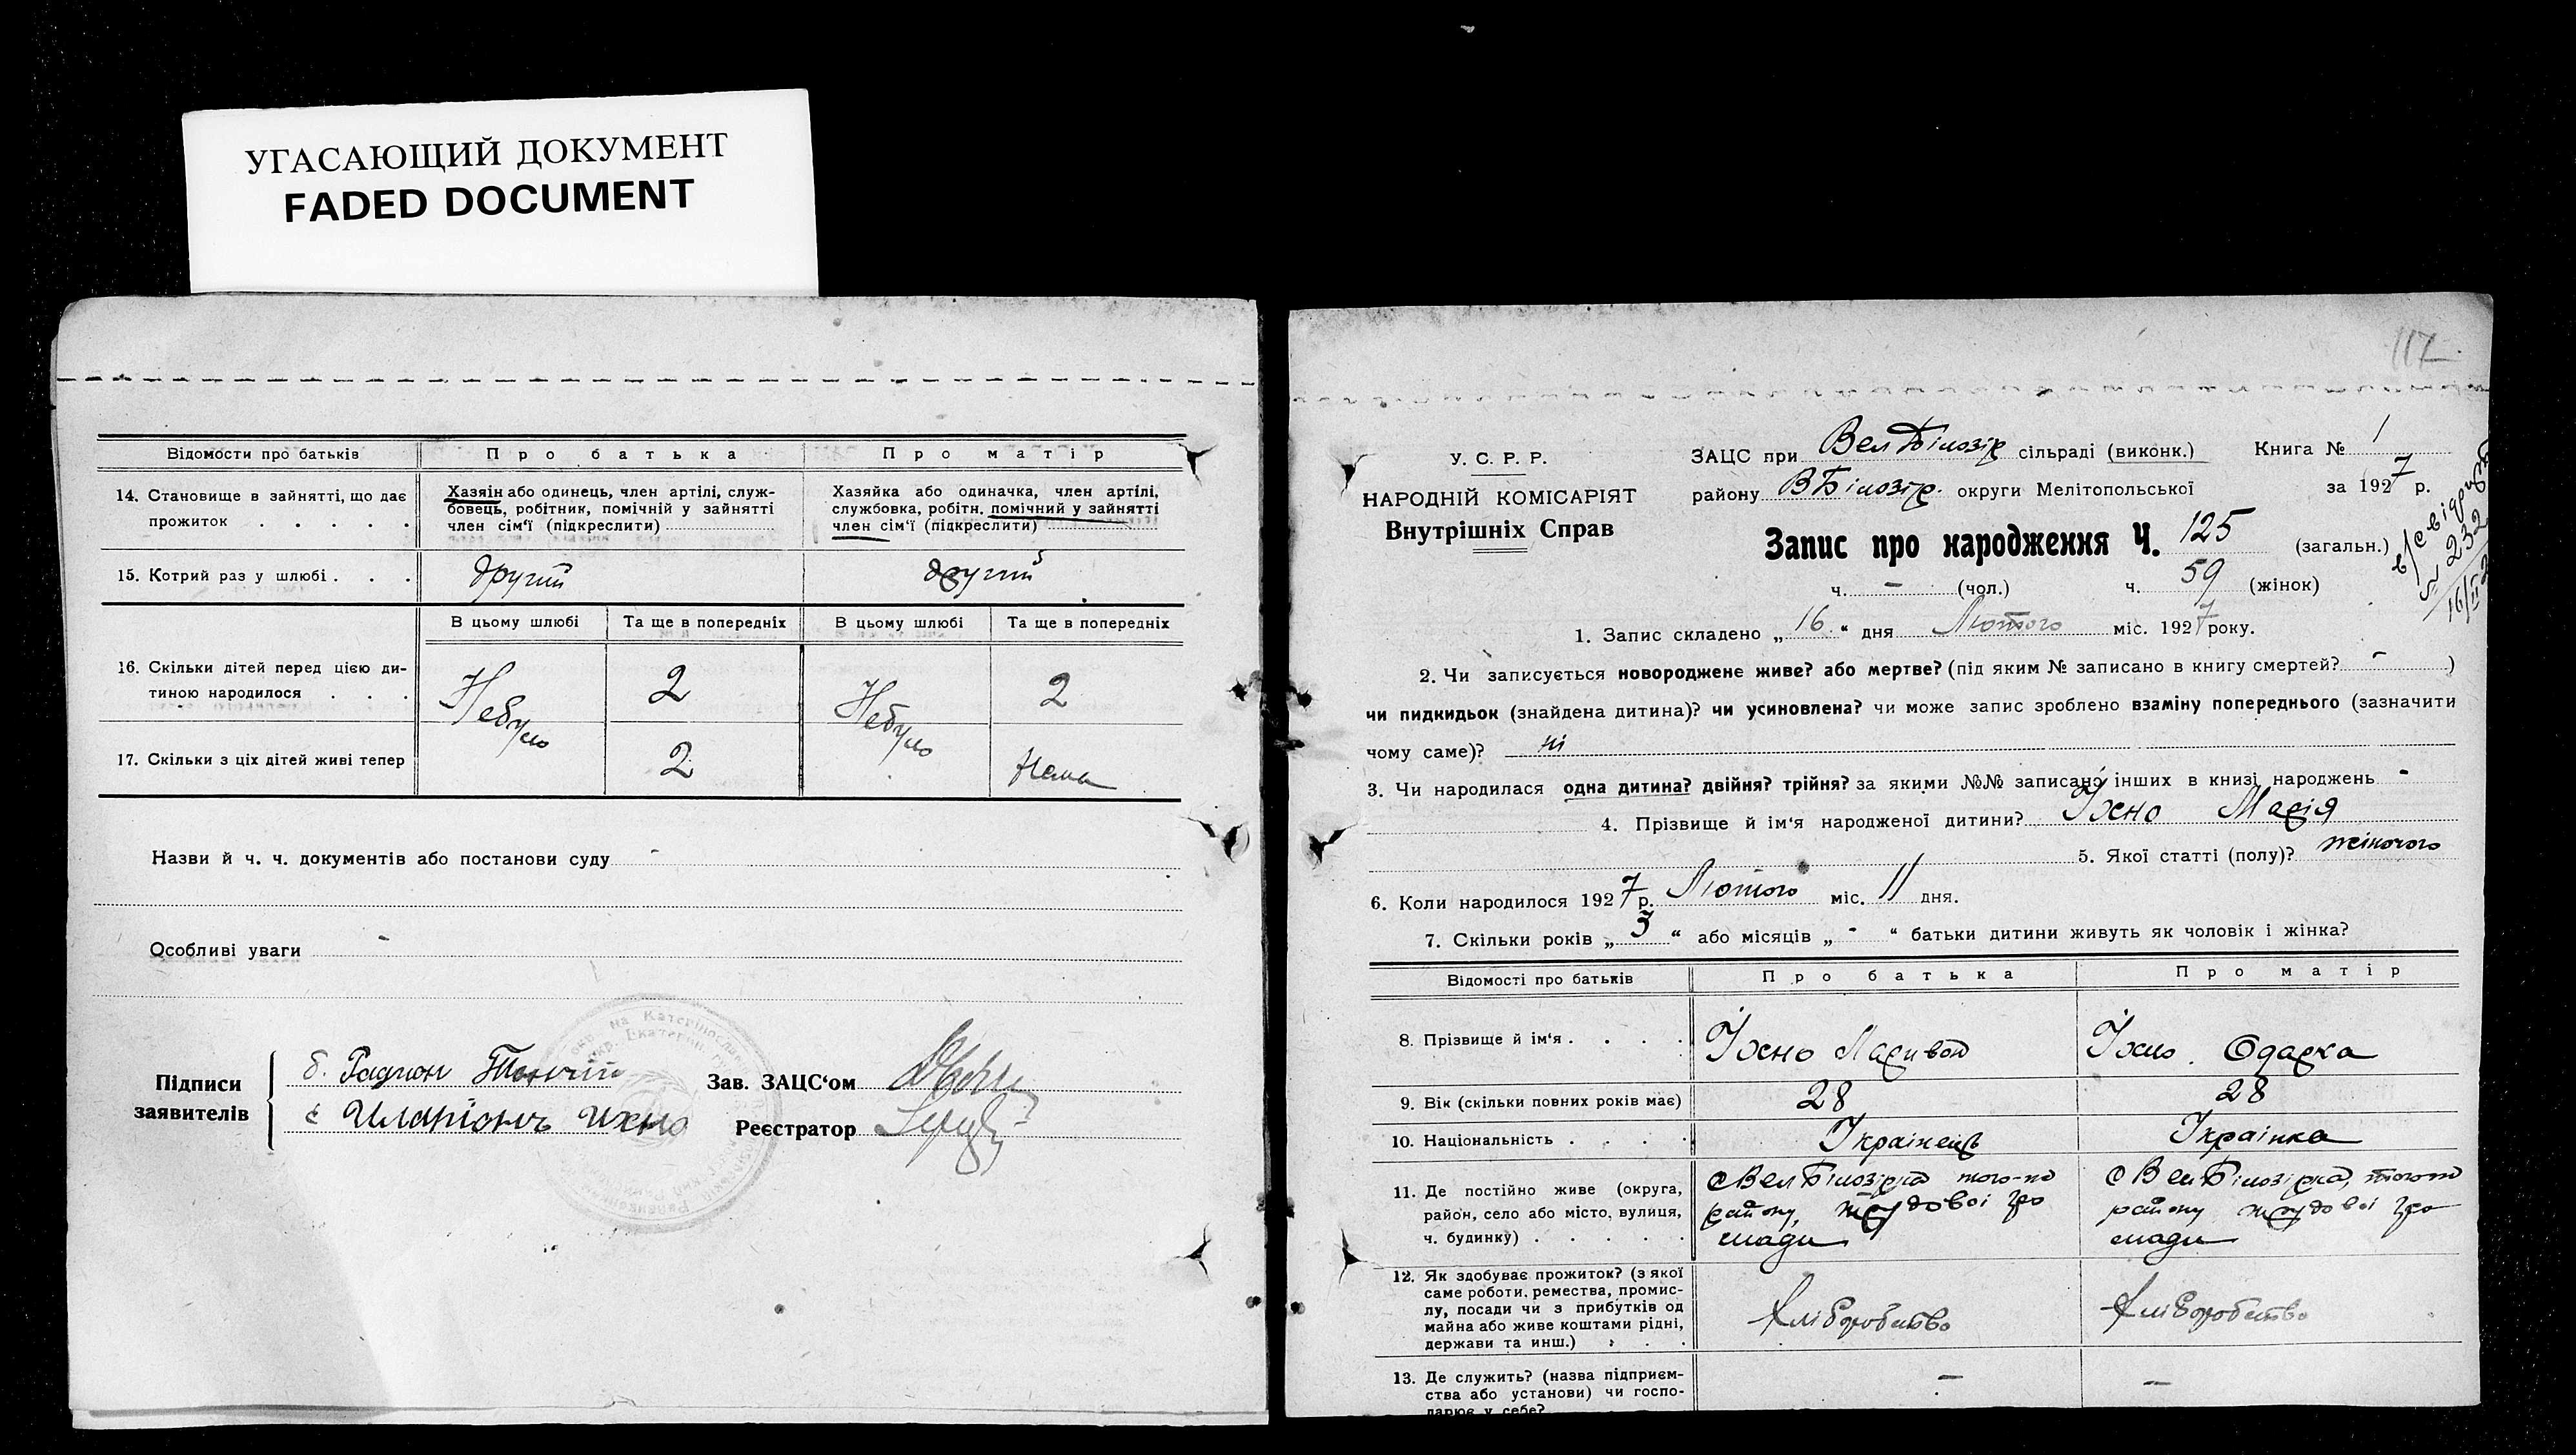 УГАСАЮЩИЙ ДОКУМЕНТ
FADED DOCUMENT
Відомости про батьків
Про батька
Про матір
14. Становище в зайнятті, що дає прожиток . . . . .
Хазяїн або одинець, член артілі, служ-
бовець, робітник, помічній у зайнятті
член сім'ї (підкреслити)
Хазяйка або одиначка, член артілі,
службовка, робітн. помічний у зайнятті
член сім'ї (підкреслити)
15. Котрий раз у шлюбі . . .
другий
другий
В цьому шлюбі
Та ще в попередніх
В цьому шлюбі
Та ще в попередніх
16. Скільки дітей перед цією ди-
тиною народилося . . .
Небуло
2
Небуло
2
17. Скільки з ціх дітей живі тепер
2
Нема
Назви й ч. ч. документів або постанови суду -
Особливі уваги -
Підписи
заявителів
Зав. ЗАЦС'ом
Иларіонъ Ихно
Реєстратор
117
У. С. Р. Р.
НАРОДНІЙ КОМІСАРІЯТ
Внутрішніх Справ
ЗАЦС при Вел Білозір сільраді (виконк.) Книга № 1
району ВБілозір. округи Мелітопольської за 1927 р.
Запис про народження Ч. 125 (загальн.)
ч. - (чол.) ч. 59 (жінок)
№ 232
1. Запис складено „16“ дня Лютого міс. 1927 року.
2. Чи записується новороджене живе? або мертве? (під яким № записано в книгу смертей? - )
чи пидкидьок (знайдена дитина)? чи усиновлена? чи може запис зроблено взаміну попереднього (зазначити
чому саме)? ні
3. Чи народилася одна дитина? двійня? трійня? за якими №№ записано інших в книзі народжень -
4. Прізвище й ім'я народженої дитини? Їхно Марія
5. Якої статті (полу)? жіночого
6. Коли народилося 1927 р. Лютого міс. 11 дня.
7. Скільки років „3“ або місяців „-“ батьки дитини живуть як чоловік і жінка?
Відомості про батьків
Про батька
Про матір
8. Прізвище й ім'я . . . .
Їхно Ларивон
Їхно Одарка
9. Вік (скільки повних років має)
28
28
10. Національність . . . .
Українець
Українка
11. Де постійно живе (округа,
район, село або місто, вулиця,
ч. будинку) . . . . .
с Вел Білозірка того-ж
району, трудової гро
мади
с Вел Білозірка, того ж
району трудової гро
мади
12. Як здобуває прожиток? (з якої
саме роботи, ремества, промис-
лу, посади чи з прибутків од
майна або живе коштами рідні,
держави та инш.) . . .
Хліборобство
Хліборобство
13. Де служить? (назва підприєм-
ства або установи) чи госпо-
дарює у себе?
-
-